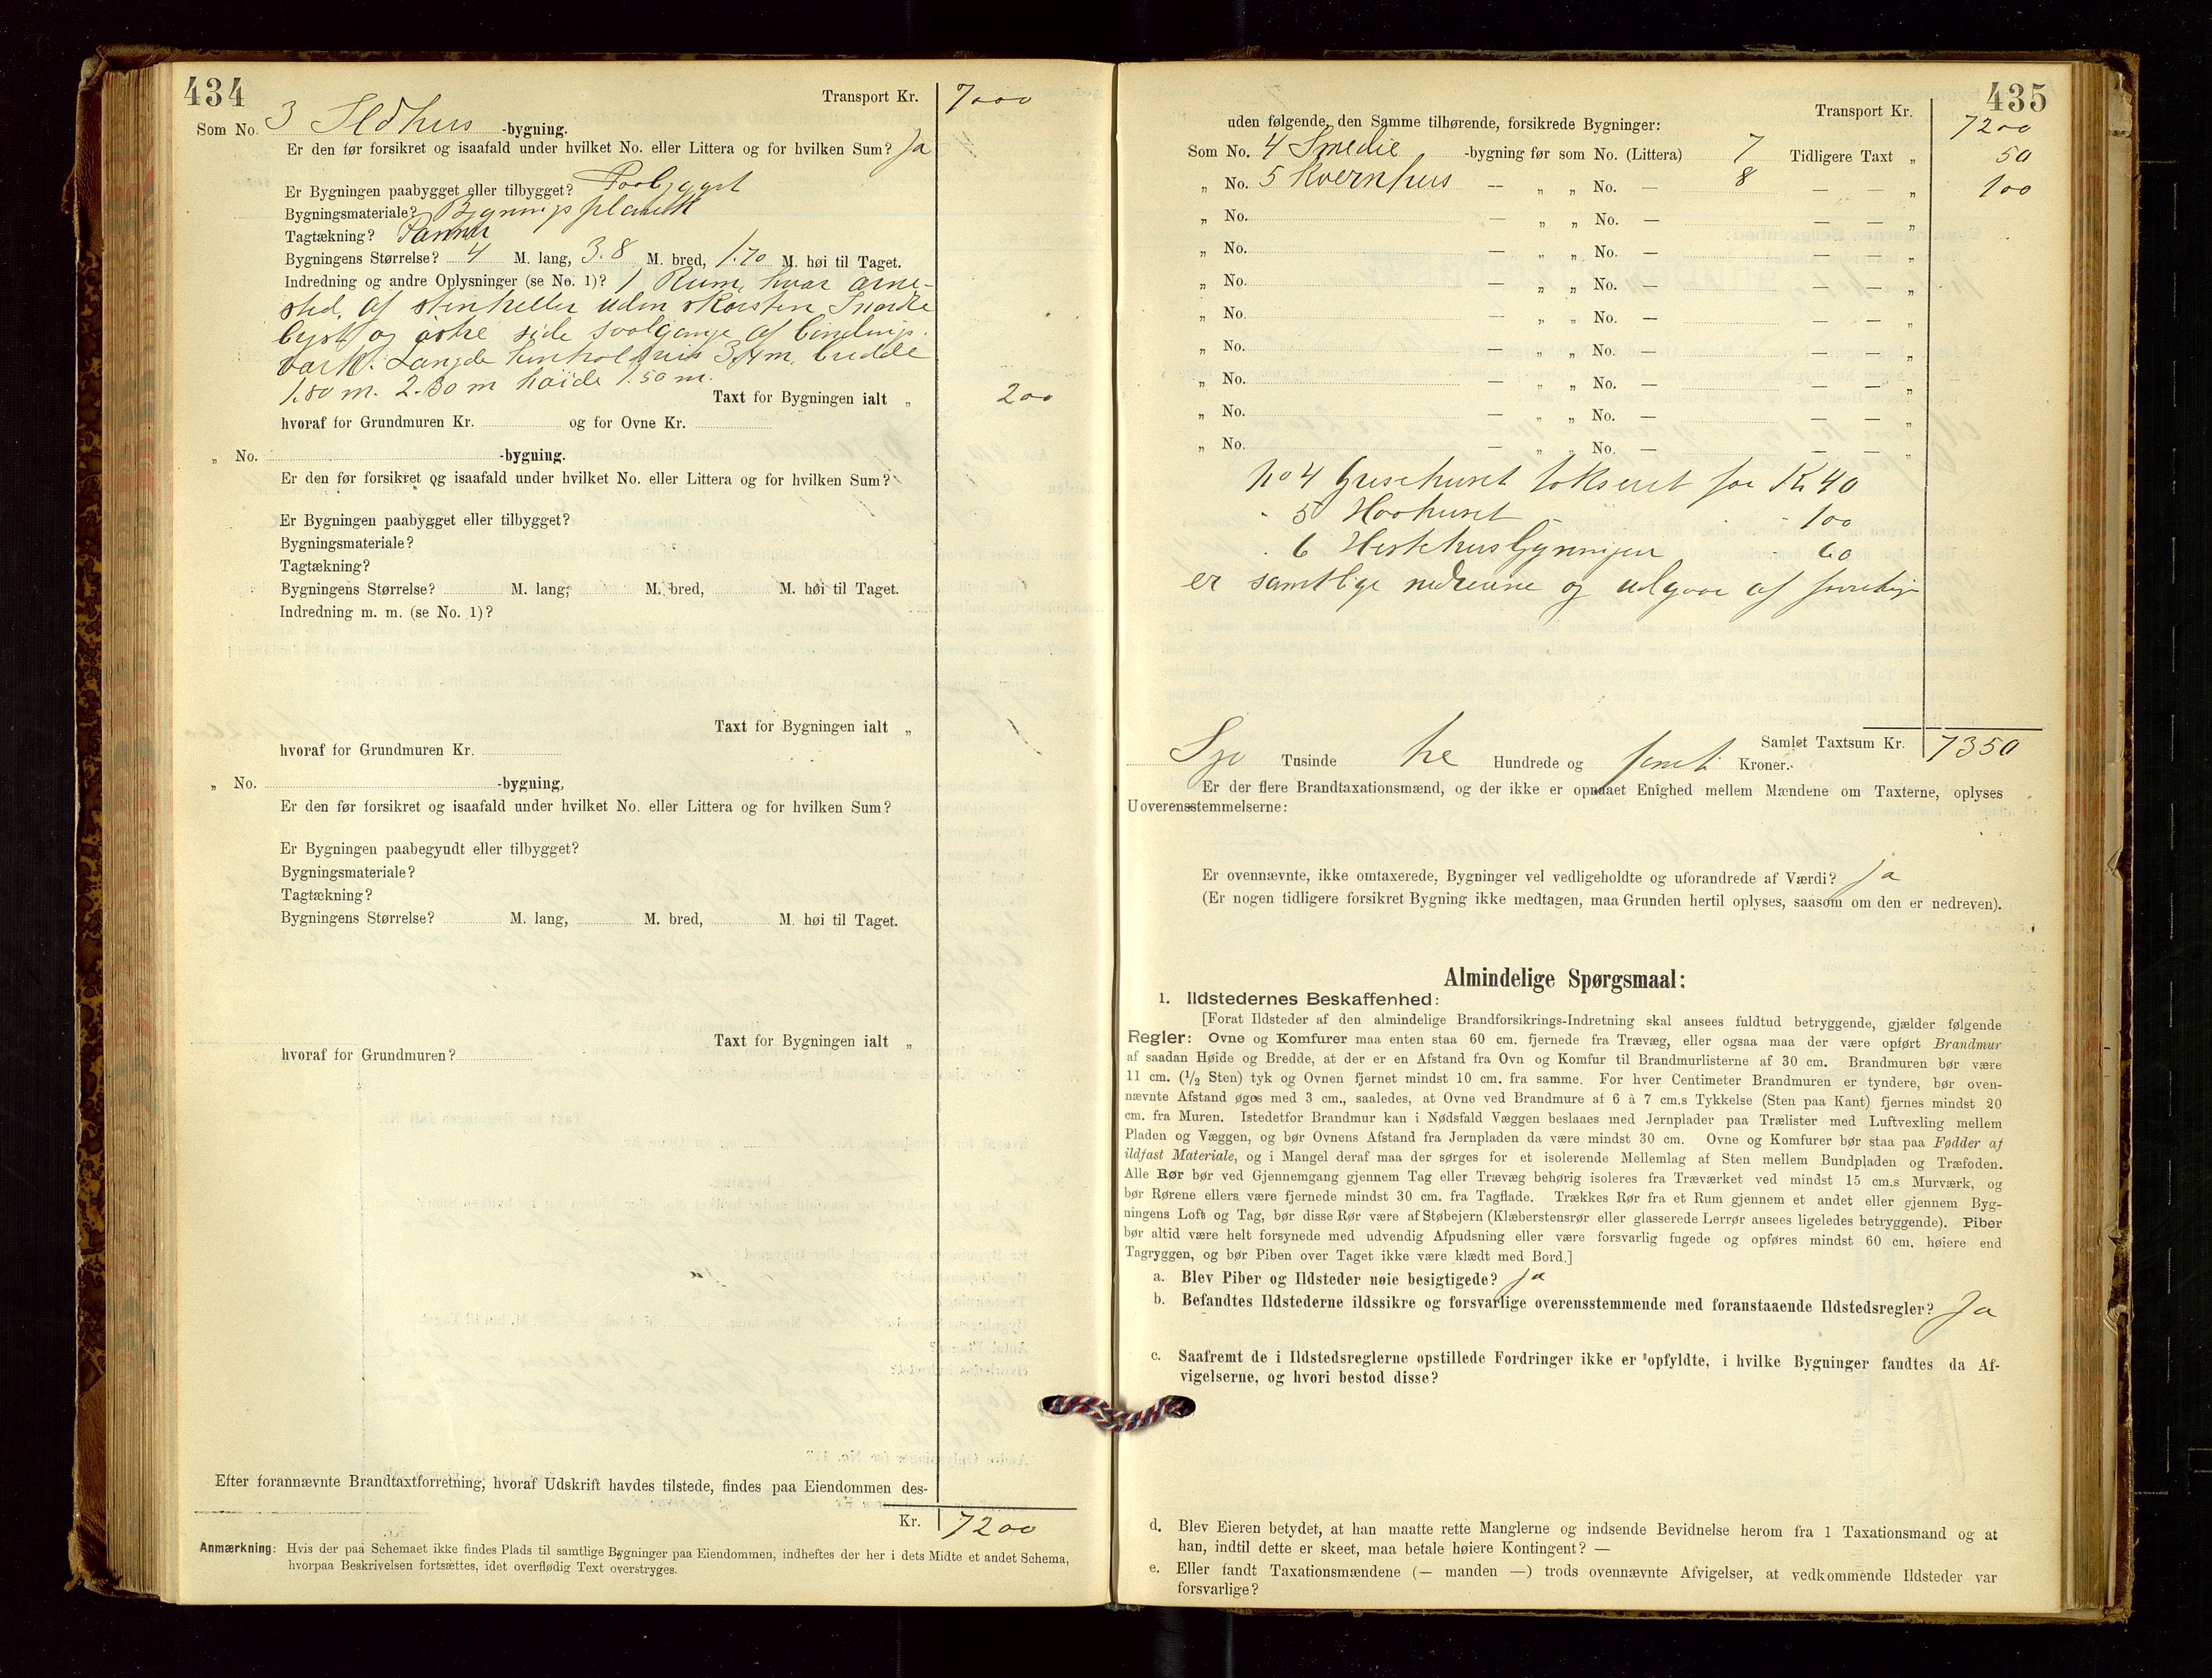 434
Transport Kr. 7000
Som No. 3 Ildhus -bygning.
Er den før forsikret og isaafald under hvilket No. eller Littera og for hvilken Sum? Ja
Er Bygningen paabygget eller tilbygget? Paabygget
Bygningsmateriale? Bygningsplank
Tagtækning? Panner
Bygningens Størrelse? 4 M. lang, 3.8 M. bred, 1.70 M. høi til Taget.
Indredning og andre Oplysninger (se No. 1)? 1 Rum, hvor arne-
sted, af stenheller uden skorsten I nordre
byst og østre side svalgange af bindings
værk. Længde henholdsvis 3,4 m, bredde
1.80 m. 2.80 m høide 1.50 m.
Taxt for Bygningen ialt „ 200
hvoraf for Grundmuren Kr. og for Ovne Kr.
„ No. -bygning.
Er den før forsikret og isaafald under hvilket No. eller Littera og for hvilken Sum?
Er Bygningen paabygget eller tilbygget?
Bygningsmateriale?
Tagtækning?
Bygningens Størrelse? M. lang, M. bred, M. høi til Taget.
Indredning m. m. (se No. 1)?
Taxt for Bygningen ialt „
hvoraf for Grundmuren Kr.
„ No. -bygning,
Er den før forsikret og isaafald under hvilket No. eller Littera og for hvilken Sum?
Er Bygningen paabegyudt eller tilbygget?
Bygningsmateriale?
Tagtækning?
Bygningens Størrelse? M. lang, M. bred, M. høi til Taget.
Taxt for Bygningen ialt „
hvoraf for Grundmuren?
Efter forannævnte Brandtaxtforretning, hvoraf Udskrift havdes tilstede, findes paa Eiendommen des-
Kr. 7200
Anmærkning: Hvis der paa Schemaet ikke findes Plads til samtlige Bygninger paa Eiendommen, indheftes der her i dets Midte et andet Schema,
hvorpaa Beskrivelsen fortsættes, idet overflødig Text overstryges.
435
Transport Kr. 7200
uden følgende, den Samme tilhørende, forsikrede Bygninger:
Som No. 4 Smedie -bygning før som No. (Littera) 7 Tidligere Taxt „ 50
„ No. 5 Kvernhus — „ „ No. — 8 — — „ 100
„ No. — „ „ No. — — — „
„ No. — „ „ No. — — — „
„ No. — „ „ No. — — — „
„ No. — „ „ No. — — — „
„ No. — „ „ No. — — — „
„ No. — „ „ No. — — — „
„ No. — „ „ No. — — — „
„ No. — „ „ No. — — — „
No 4 Grisehuset takseret for Kr 40
- 5 Høohuset - 100
- 6 Hestehusbygningen - 60
er samtlige nedrevne og udgaar af
Samlet Taxtsum Kr. 7350
Syv Tusinde tre Hundrede og femti Kroner.
Er der flere Brandtaxationsmænd, og der ikke er opnaaet Enighed mellem Mændene om Taxterne, oplyses
Uoverensstemmelserne:
Er ovennævnte, ikke omtaxerede, Bygninger vel vedligeholdte og uforandrede af Værdi? ja
(Er nogen tidligere forsikret Bygning ikke medtagen, maa Grunden hertil oplyses, saasom om den er nedreven).
Almindelige Spørgsmaal:
1. Ildstedernes Beskaffenhed:
[Forat Ildsteder af den almindelige Brandforsikrings-Indretning skal ansees fuldtud betryggende, gjælder følgende
Regler: Ovne og Komfurer maa enten staa 60 cm. fjernede fra Trævæg, eller ogsaa maa der være opført Brandmur
af saadan Høide og Bredde, at der er en Afstand fra Ovn og Komfur til Brandmurlisterne af 30 cm. Brandmuren bør være
11 cm. (1/2 Sten) tyk og Ovnen fjernet mindst 10 cm. fra samme. For hver Centimeter Brandmuren er tyndere, bør oven-
nævnte Afstand øges med 3 cm., saaledes, at Ovne ved Brandmure af 6 à 7 cm.s Tykkelse (Sten paa Kant) fjernes mindst 20
cm. fra Muren. Istedetfor Brandmur kan i Nødsfald Væggen beslaaes med Jernplader paa Trælister med Luftvexling mellem
Pladen og Væggen, og bør Ovnens Afstand fra Jernpladen da være mindst 30 cm. Ovne og Komfurer bør staa paa Fødder af
ildfast Materiale, og i Mangel deraf maa der sørges for et isolerende Mellemlag af Sten mellem Bundpladen og Træfoden.
Alle Rør bør ved Gjennemgang gjennem Tag eller Trævæg behørig isoleres fra Træværket ved mindst 15 cm.s Murværk, og
bør Rørene ellers være fjernede mindst 30 cm. fra Tagflade. Trækkes Rør fra et Rum gjennem et andet eller gjennem Byg-
ningens Loft og Tag, bør disse Rør være af Støbejern (Klæberstensrør eller glasserede Lerrør ansees ligeledes betryggende). Piber
bør altid være helt forsynede med udvendig Afpudsning eller være forsvarlig fugede og opføres mindst 60 cm. høiere end
Tagryggen, og bør Piben over Taget ikke være klædt med Bord.]
a. Blev Piber og Ildsteder nøie besigtigede? ja
b. Befandtes Ildstederne ildssikre og forsvarlige overensstemmende med foranstaaende Ildstedsregler? Ja
c. Saafremt de i Ildstedsreglerne opstillede Fordringer ikke er opfyldte, i hvilke Bygninger fandtes da Af-
vigelserne, og hvori bestod disse?
d. Blev Eieren betydet, at han maatte rette Manglerne og indsende Bevidnelse herom fra 1 Taxationsmand og at
han, indtil dette er skeet, maa betale høiere Kontingent? —
e. Eller fandt Taxationsmændene (— manden —) trods ovennævnte Afvigelser, at vedkommende Ildsteder var
forsvarlige?